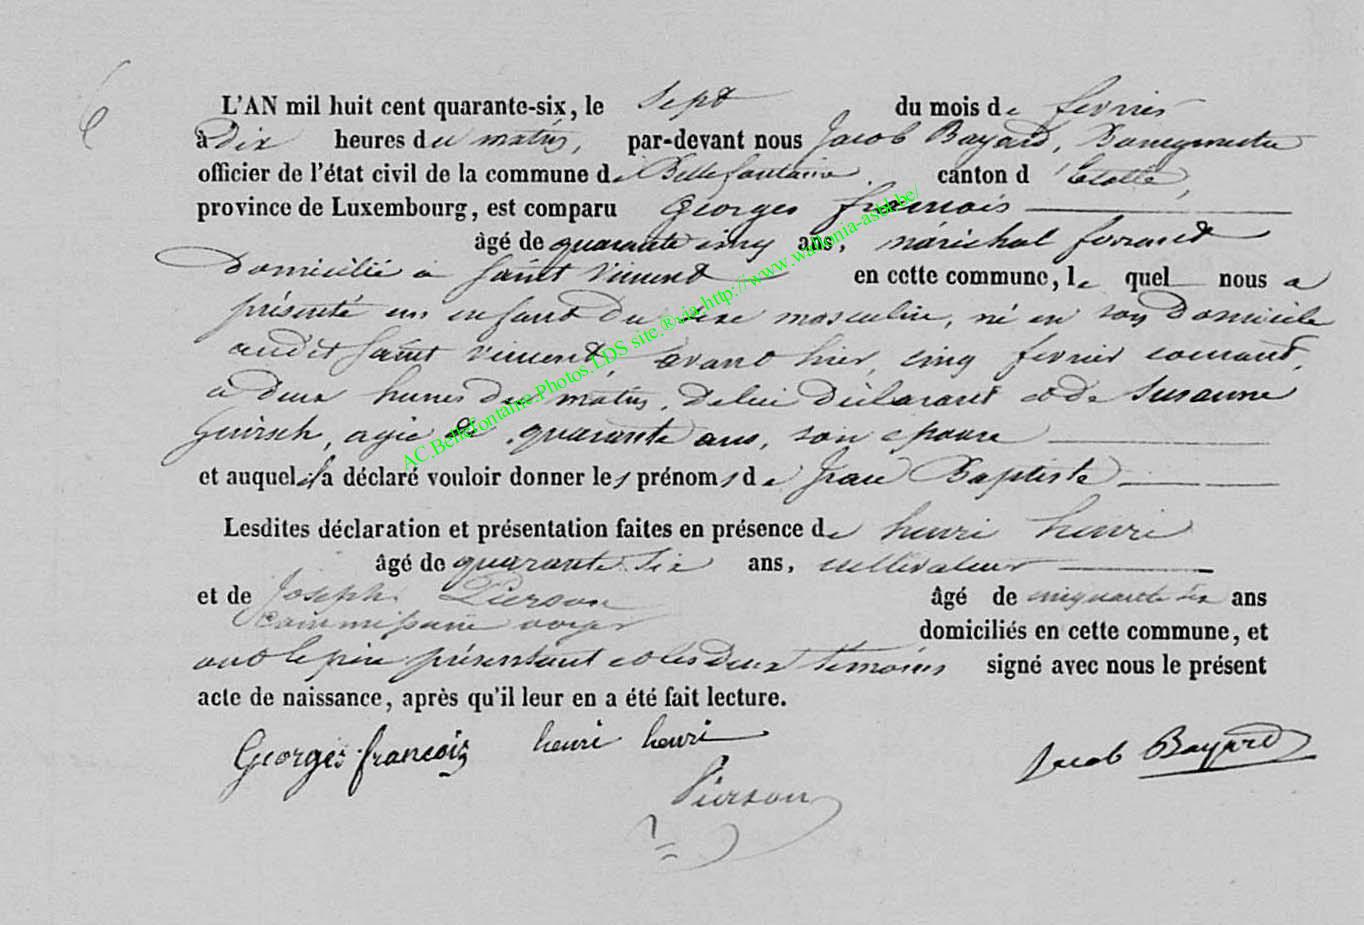 6
L'AN mil huit cent quarante-six, le Sept du mois de fevrier
à Dix heures du matin, par-devant nous Jacob Bayard, Bourgmestre
officier de l'état civil de la commune de Bellefontaine, canton d'Etalle,
province de Luxembourg, est comparu Georges françois
âgé de quarante cinq ans, maréchal ferrant
Domicilié à Saint Vincent en cette commune, lequel nous a
présenté un enfant du sexe masculin, né en son Domicile
audit Saint Vincent, avant hier, cinq fevrier courant,
a deux heures du matin, de lui Déclarant et de Susanne
Guirsch, agée de quarante ans, son epouse
et auquel il a déclaré vouloir donner les prénoms de Jean Baptiste
Lesdites déclaration et présentation faites en présence de henri henri
âgé de quarante six ans, cultivateur
et de Joseph Pierson âgé de cinquante six ans
Commissaire voyer domiciliés en cette commune, et
ont le père présentant et les deux témoins signé avec nous le présent
acte de naissance, après qu'il leur en a été fait lecture.
Georges françois henri henri Jacob Bayard
Pierson
AC.Bellefontaine.Photos.LDS site.®via.http://www.wallonia-asbl.be/